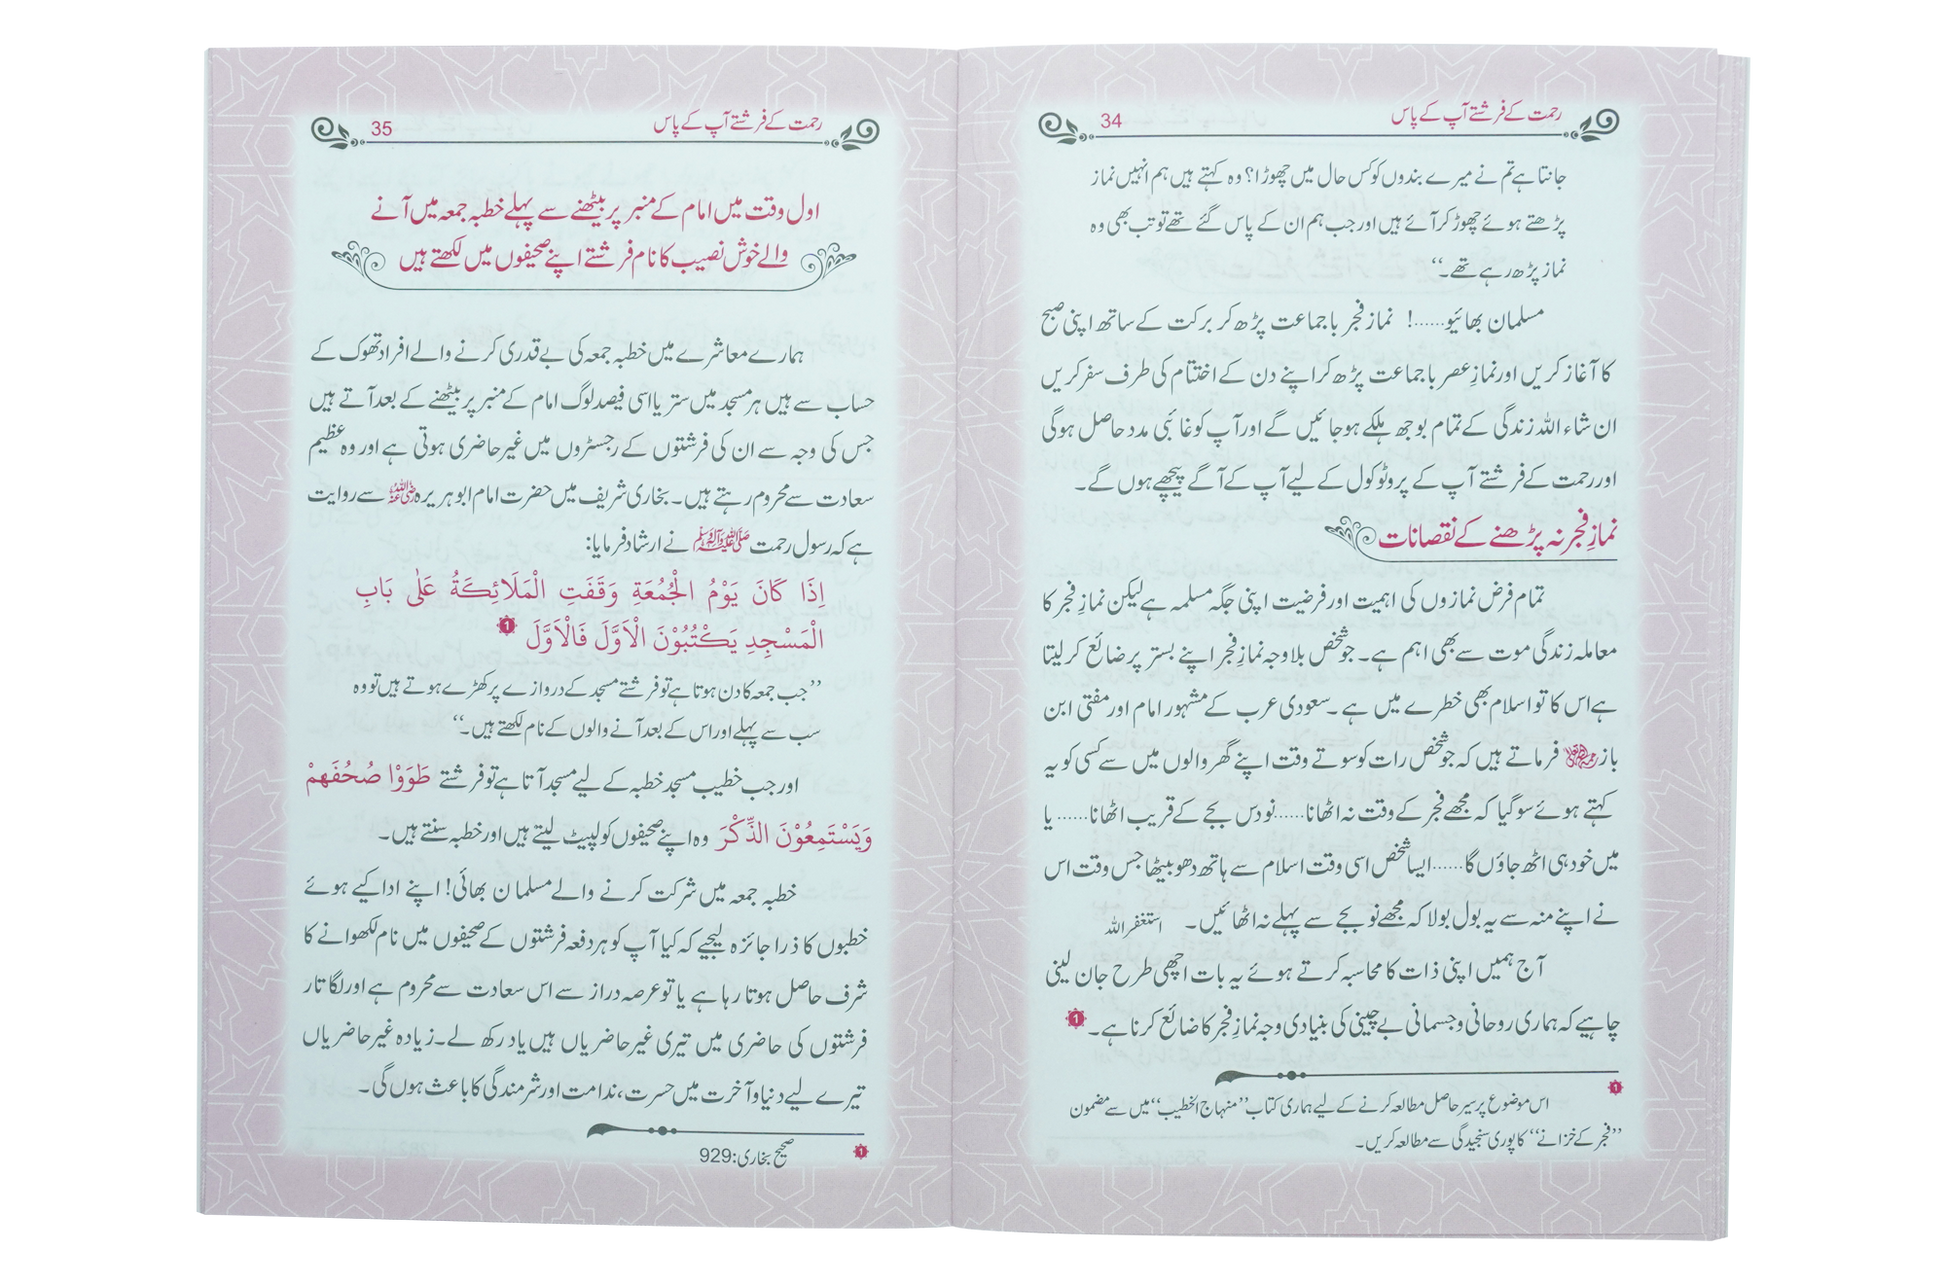 رحمت کے فرشتے آپ کے پاس 34
جانتا ہے تم نے میرے بندوں کو کس حال میں چھوڑا؟ وہ کہتے ہیں ہم انہیں نماز
پڑھتے ہوئے چھوڑ کر آئے ہیں اور جب ہم ان کے پاس گئے تھے تو تب بھی وہ
نماز پڑھ رہے تھے۔“
مسلمان بھائیو......! نماز فجر باجماعت پڑھ کر برکت کے ساتھ اپنی صبح
کا آغاز کریں اور نمازِ عصر باجماعت پڑھ کر اپنے دن کے اختتام کی طرف سفر کریں
ان شاء اللہ زندگی کے تمام بوجھ ہلکے ہو جائیں گے اور آپ کو غائبی مدد حاصل ہوگی
اور رحمت کے فرشتے آپ کے پروٹوکول کے لیے آپ کے آگے پیچھے ہوں گے۔
نمازِ فجر نہ پڑھنے کے نقصانات
تمام فرض نمازوں کی اہمیت اور فرضیت اپنی جگہ مسلمہ ہے لیکن نمازِ فجر کا
معاملہ زندگی موت سے بھی اہم ہے۔ جو شخص بلاوجہ نمازِ فجر اپنے بستر پر ضائع کر لیتا
ہے اس کا تو اسلام بھی خطرے میں ہے۔ سعودی عرب کے مشہور امام اور مفتی ابن
باز رحمہ اللہ فرماتے ہیں کہ جو شخص رات کو سوتے وقت اپنے گھر والوں میں سے کسی کو یہ
کہتے ہوئے سو گیا کہ مجھے فجر کے وقت نہ اٹھانا......نو دس بجے کے قریب اٹھانا...... یا
میں خود ہی اٹھ جاؤں گا......ایسا شخص اسی وقت اسلام سے ہاتھ دھو بیٹھا جس وقت اس
نے اپنے منہ سے یہ بول بولا کہ مجھے نو بجے سے پہلے نہ اٹھائیں۔ استغفر اللہ
آج ہمیں اپنی ذات کا محاسبہ کرتے ہوئے یہ بات اچھی طرح جان لینی
چاہیے کہ ہماری روحانی و جسمانی بے چینی کی بنیادی وجہ نمازِ فجر کا ضائع کرنا ہے۔ 1
1 اس موضوع پر سیر حاصل مطالعہ کرنے کے لیے ہماری کتاب ”منہاج الخطیب“ میں سے مضمون
”فجر کے خزانے“ کا پوری سنجیدگی سے مطالعہ کریں۔
رحمت کے فرشتے آپ کے پاس 35
اول وقت میں امام کے منبر پر بیٹھنے سے پہلے خطبہ جمعہ میں آنے
والے خوش نصیب کا نام فرشتے اپنے صحیفوں میں لکھتے ہیں
ہمارے معاشرے میں خطبہ جمعہ کی بے قدری کرنے والے افراد تھوک کے
حساب سے ہیں ہر مسجد میں ستر یا اسی فیصد لوگ امام کے منبر پر بیٹھنے کے بعد آتے ہیں
جس کی وجہ سے ان کی فرشتوں کے رجسٹروں میں غیر حاضری ہوتی ہے اور وہ عظیم
سعادت سے محروم رہتے ہیں۔ بخاری شریف میں حضرت امام ابوہریرہ رضی اللہ عنہ سے روایت
ہے کہ رسول رحمت صلی اللہ علیہ وآلہ وسلم نے ارشاد فرمایا:
اِذَا كَانَ يَوْمُ الْجُمُعَةِ وَقَفَتِ الْمَلَائِكَةُ عَلٰى بَابِ
الْمَسْجِدِ يَكْتُبُوْنَ الْاَوَّلَ فَالْاَوَّلَ 1
”جب جمعہ کا دن ہوتا ہے تو فرشتے مسجد کے دروازے پر کھڑے ہوتے ہیں تو وہ
سب سے پہلے اور اس کے بعد آنے والوں کے نام لکھتے ہیں۔“
اور جب خطیب مسجد خطبہ کے لیے مسجد آتا ہے تو فرشتے طَوَوْا صُحُفَهِمْ
وَيَسْتَمِعُوْنَ الذِّكْرَ وہ اپنے صحیفوں کو لپیٹ لیتے ہیں اور خطبہ سنتے ہیں۔
خطبہ جمعہ میں شرکت کرنے والے مسلمان بھائی! اپنے ادا کیے ہوئے
خطبوں کا ذرا جائزہ لیجیے کہ کیا آپ کو ہر دفعہ فرشتوں کے صحیفوں میں نام لکھوانے کا
شرف حاصل ہوتا رہا ہے یا تو عرصہ دراز سے اس سعادت سے محروم ہے اور لگاتار
فرشتوں کی حاضری میں تیری غیر حاضریاں ہیں یاد رکھ لے۔ زیادہ غیر حاضریاں
تیرے لیے دنیا و آخرت میں حسرت، ندامت اور شرمندگی کا باعث ہوں گی۔
1 صحیح بخاری: 929